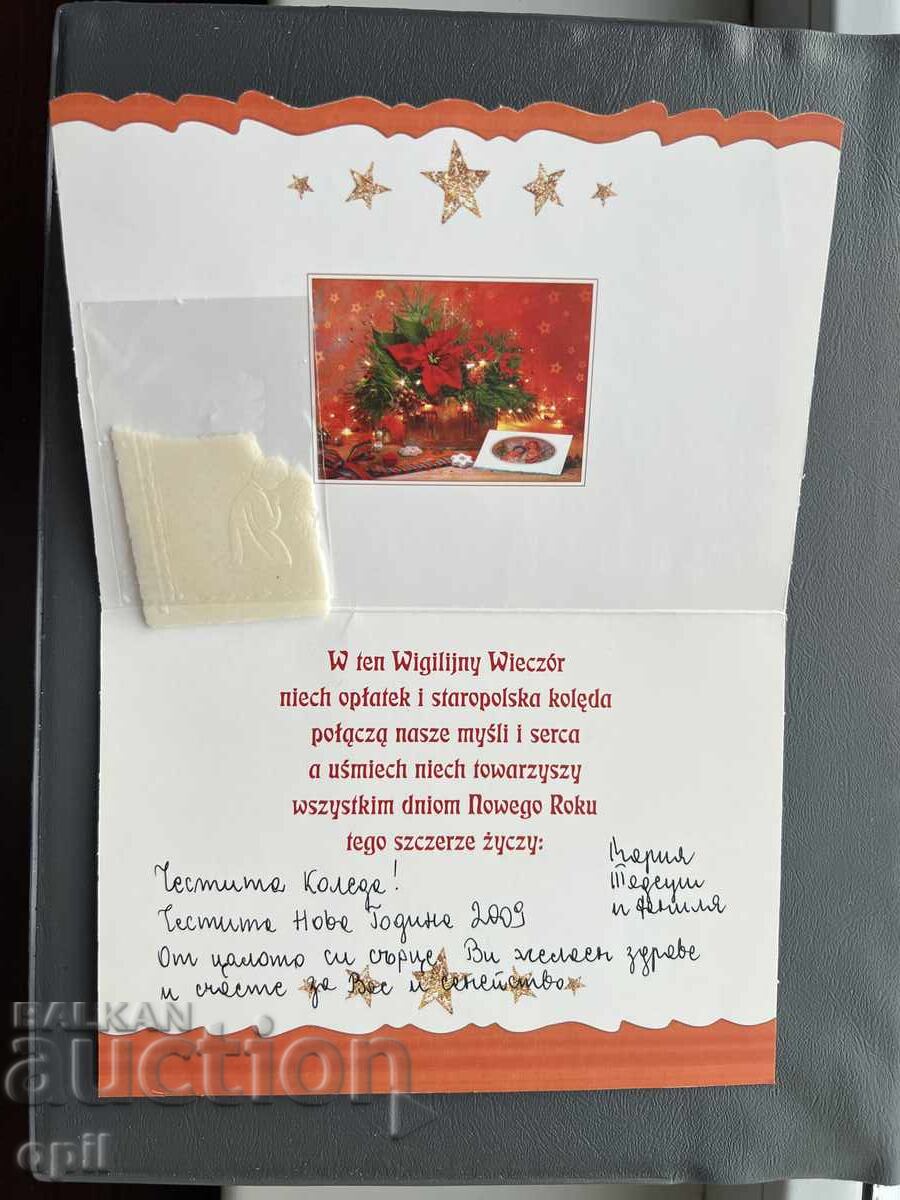 W ten Wigilijny Wieczór
niech opłatek i staropolska kolęda
połączą nasze myśli i serca
a uśmiech niech towarzyszy
wszystkim dniom Nowego Roku
tego szczerze życzy:
Мария
Тадеуш
и
Честита Коледа!
Честита Нова Година 2009
От цялото си сърце Ви желаем здраве
и счастье за Вас и семейство
BALKAN
auction
opil